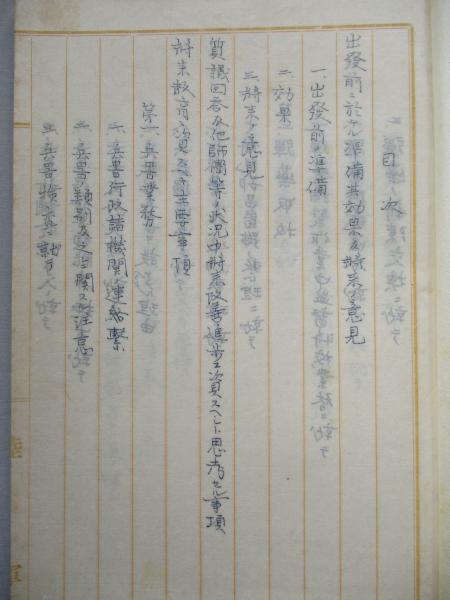 目次
出發前ニ於ケル準備其効果及將来ノ意見
一、出發前ノ準備
二、効果
三、將来ノ意見
質議回答及他師團等ノ状況中將来改善進歩ニ資スヘシト思考セル事項
將来教育ニ資スヘキ主要事項
第一、兵器業務
一、兵器行政諸機関ノ連絡繋
二、兵器ノ類別及之ニ関スル注意
三、兵器検査ニ就テ